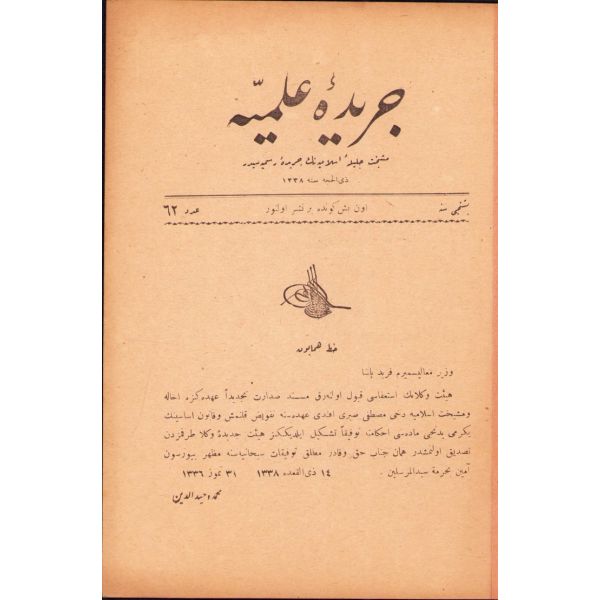 جريدۀ علميّه
مشيخت جليلۀ اسلاميه‌نك جريدۀ رسميه‌سيدر
ذى الحجه سنه ١٣٣٨
بشنجى سنه اون بش كونده بر نشر اولنور عدد ٦٢
خط همايون
وزير معاليسميرم فريد پاشا
هيئت وكلانك استعفاسى قبول اولنه‌رق مسند صدارت تجديداً عهده‌كزه احاله
ومشيخت اسلاميه دخى مصطفى صبرى افندى عهده‌سنه تفويض قلنمش وقانون اساسينك
يكرمى يدنجى ماده‌سى احكامنه توفيقاً تشكيل ايلديككز هيئت جديدۀ وكلا طرفمزدن
تصديق اولنمشدر همان جناب حق وقادر مطلق توفيقات سبحانيه‌سنه مظهر بيورسون
آمين بحرمة سيد المرسلين . ١٤ ذى القعده ١٣٣٨ ٣١ تموز ١٣٣٦
محمد وحيد الدين